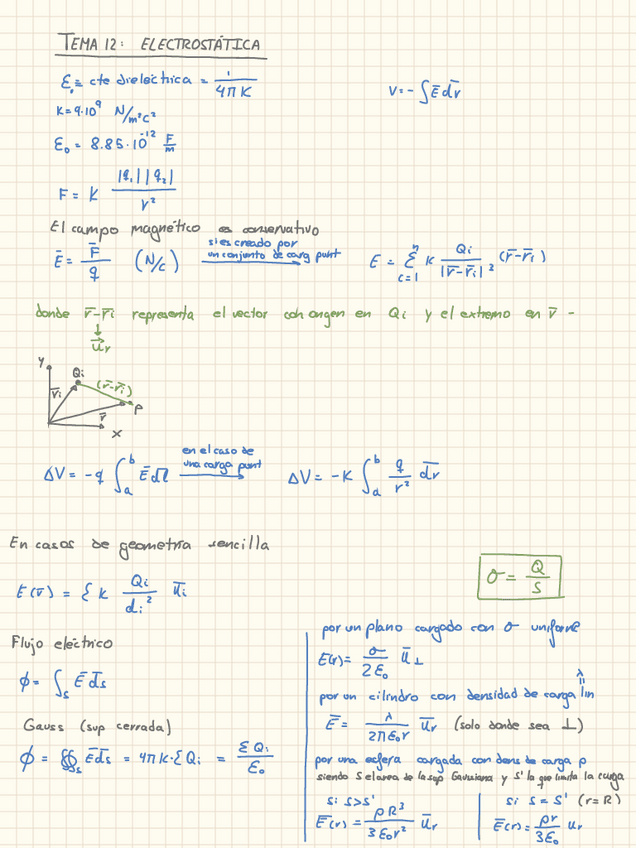 TEMA 12: ELECTROSTÁTICA
ε₀ = cte dieléctrica = 1/(4π K)
V = - ∫ E̅ dr̅
K = 9·10⁹ N/m²c²
ε₀ = 8.85·10⁻¹² F/m
F = K |q₁| |q₂| / r²
El campo magnético es conservativo
E̅ = F̅/q (N/c) si es creado por un conjunto de carg punt E = Σ c=1 n K Qi/|r̅-r̅i|² (r̅-r̅i)
donde r̅-r̅i representa el vector con origen en Qi y el extremo en r̅ -
u̅r
Y
Qi
r̅i
(r̅-r̅i)
P
r̅
X
ΔV = -q ∫ₐᵇ E̅ dl̅ en el caso de una carga punt ΔV = -K ∫ₐᵇ q/r² dr̅
En casos de geometría sencilla
σ = Q/S
E(r̅) = Σ K Qi/di² u̅i
Flujo eléctrico
ϕ = ∫s E̅ ds̅
Gauss (sup cerrada)
ϕ = ∯s E̅ ds̅ = 4πK·Σ Qi = Σ Qi/ε₀
por un plano cargado con σ uniforme
E(r) = σ/(2ε₀) u̅⊥
λ
por un cilindro con densidad de carga lin
E̅ = λ/(2πε₀r) u̅r (solo donde sea ⊥)
por una esfera cargada con dens de carga ρ
siendo S el area de la sup Gaussiana y S' la que limita la carga
si S>S'
E̅(r) = ρR³/(3ε₀r²) u̅r
si S = S' (r=R)
E̅(r) = ρr/(3ε₀) ur